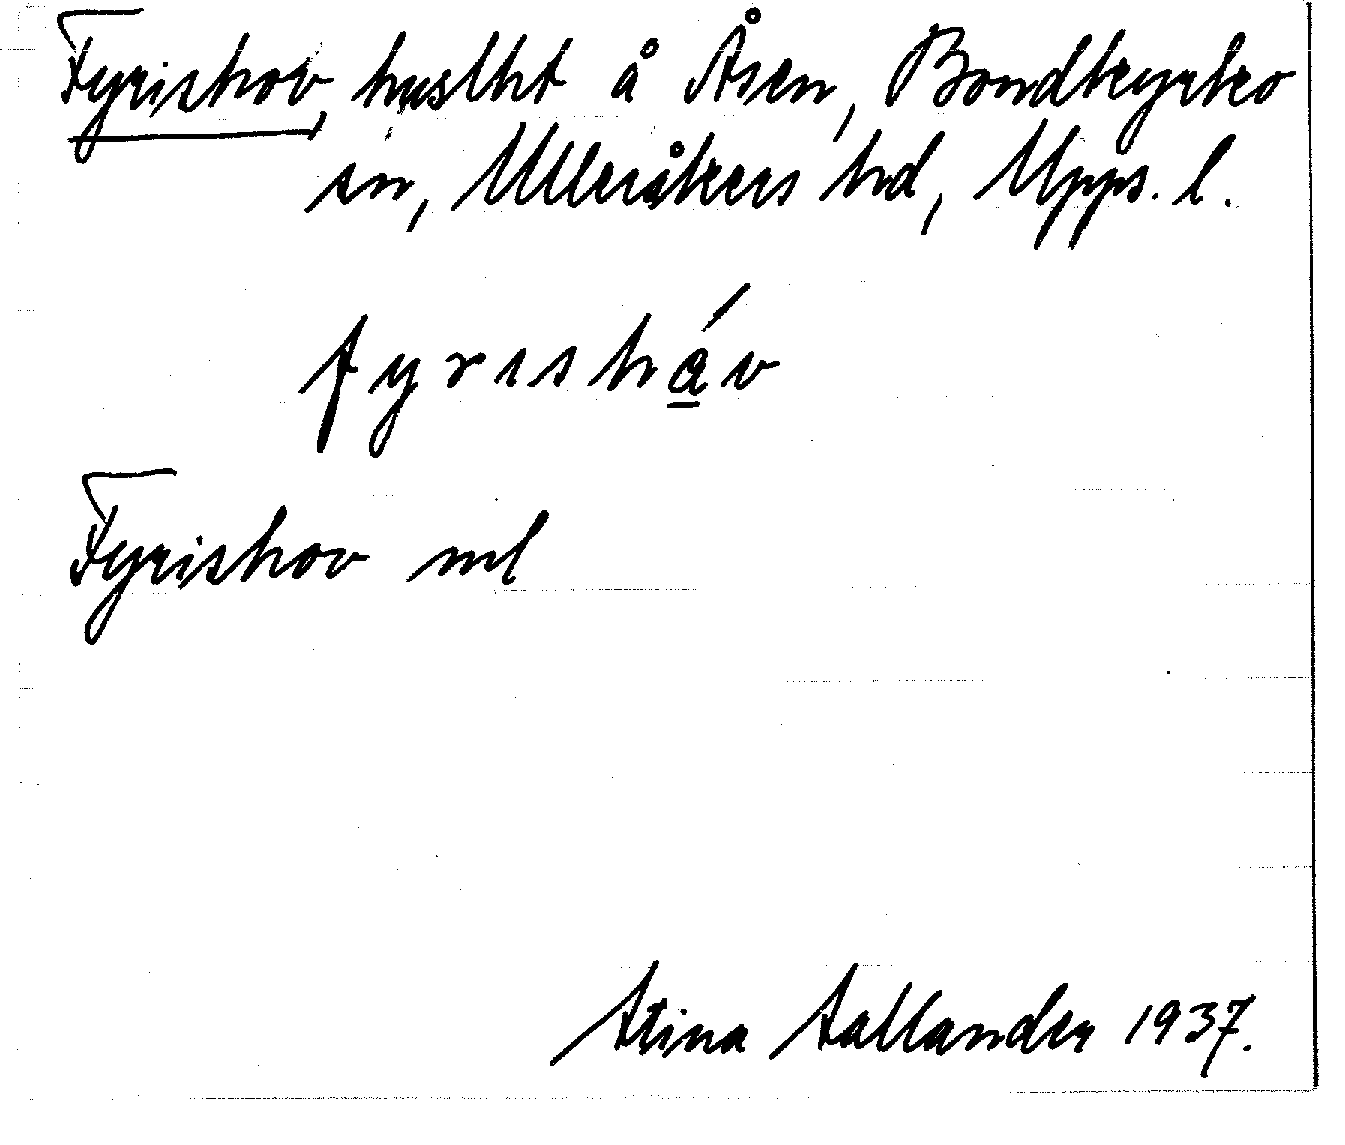 Fyrishov, huslht å Åsen, Bondkyrko
sn, Ulleråkers hd, Upps. l.
fyrɪshá̲v
Fyrishov ml
Stina Sallander 1937.